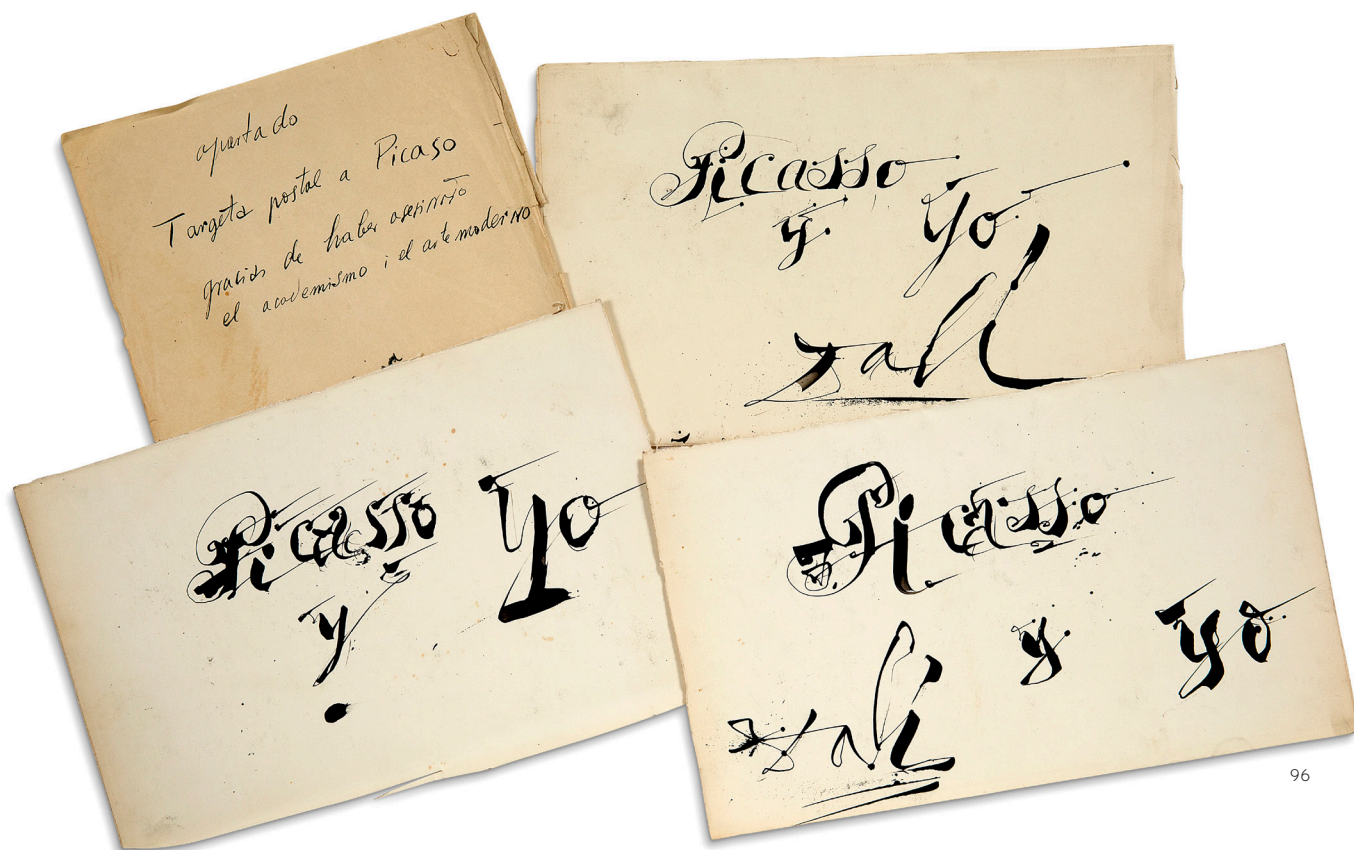 apartado
Targeta postal a Picaso
gracias de haber asesinato
el academismo i el arte moderno
Picasso
y Yo
Dalí
Picasso Yo
y
Picasso
y yo
Dalí
96